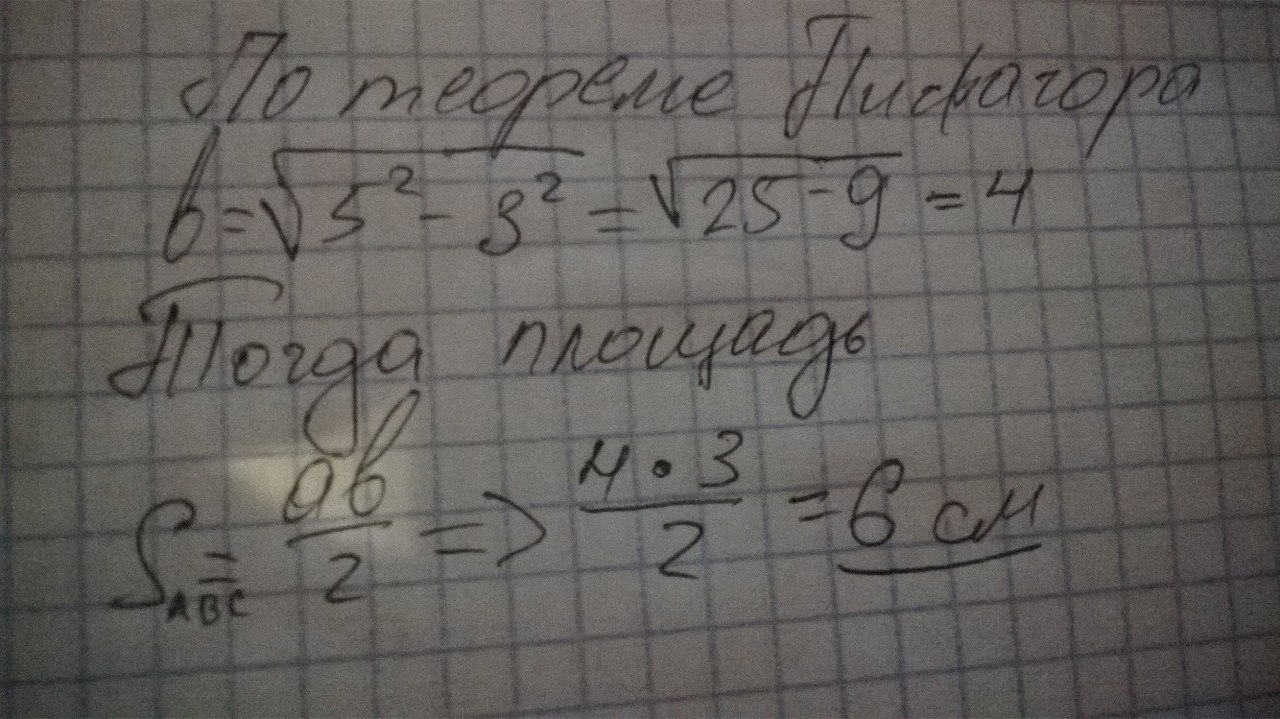 По теореме Пифагора
b = √5² - 3² = √25 - 9 = 4
Тогда площадь
S ABC = ab/2 => 4 · 3/2 = 6 см